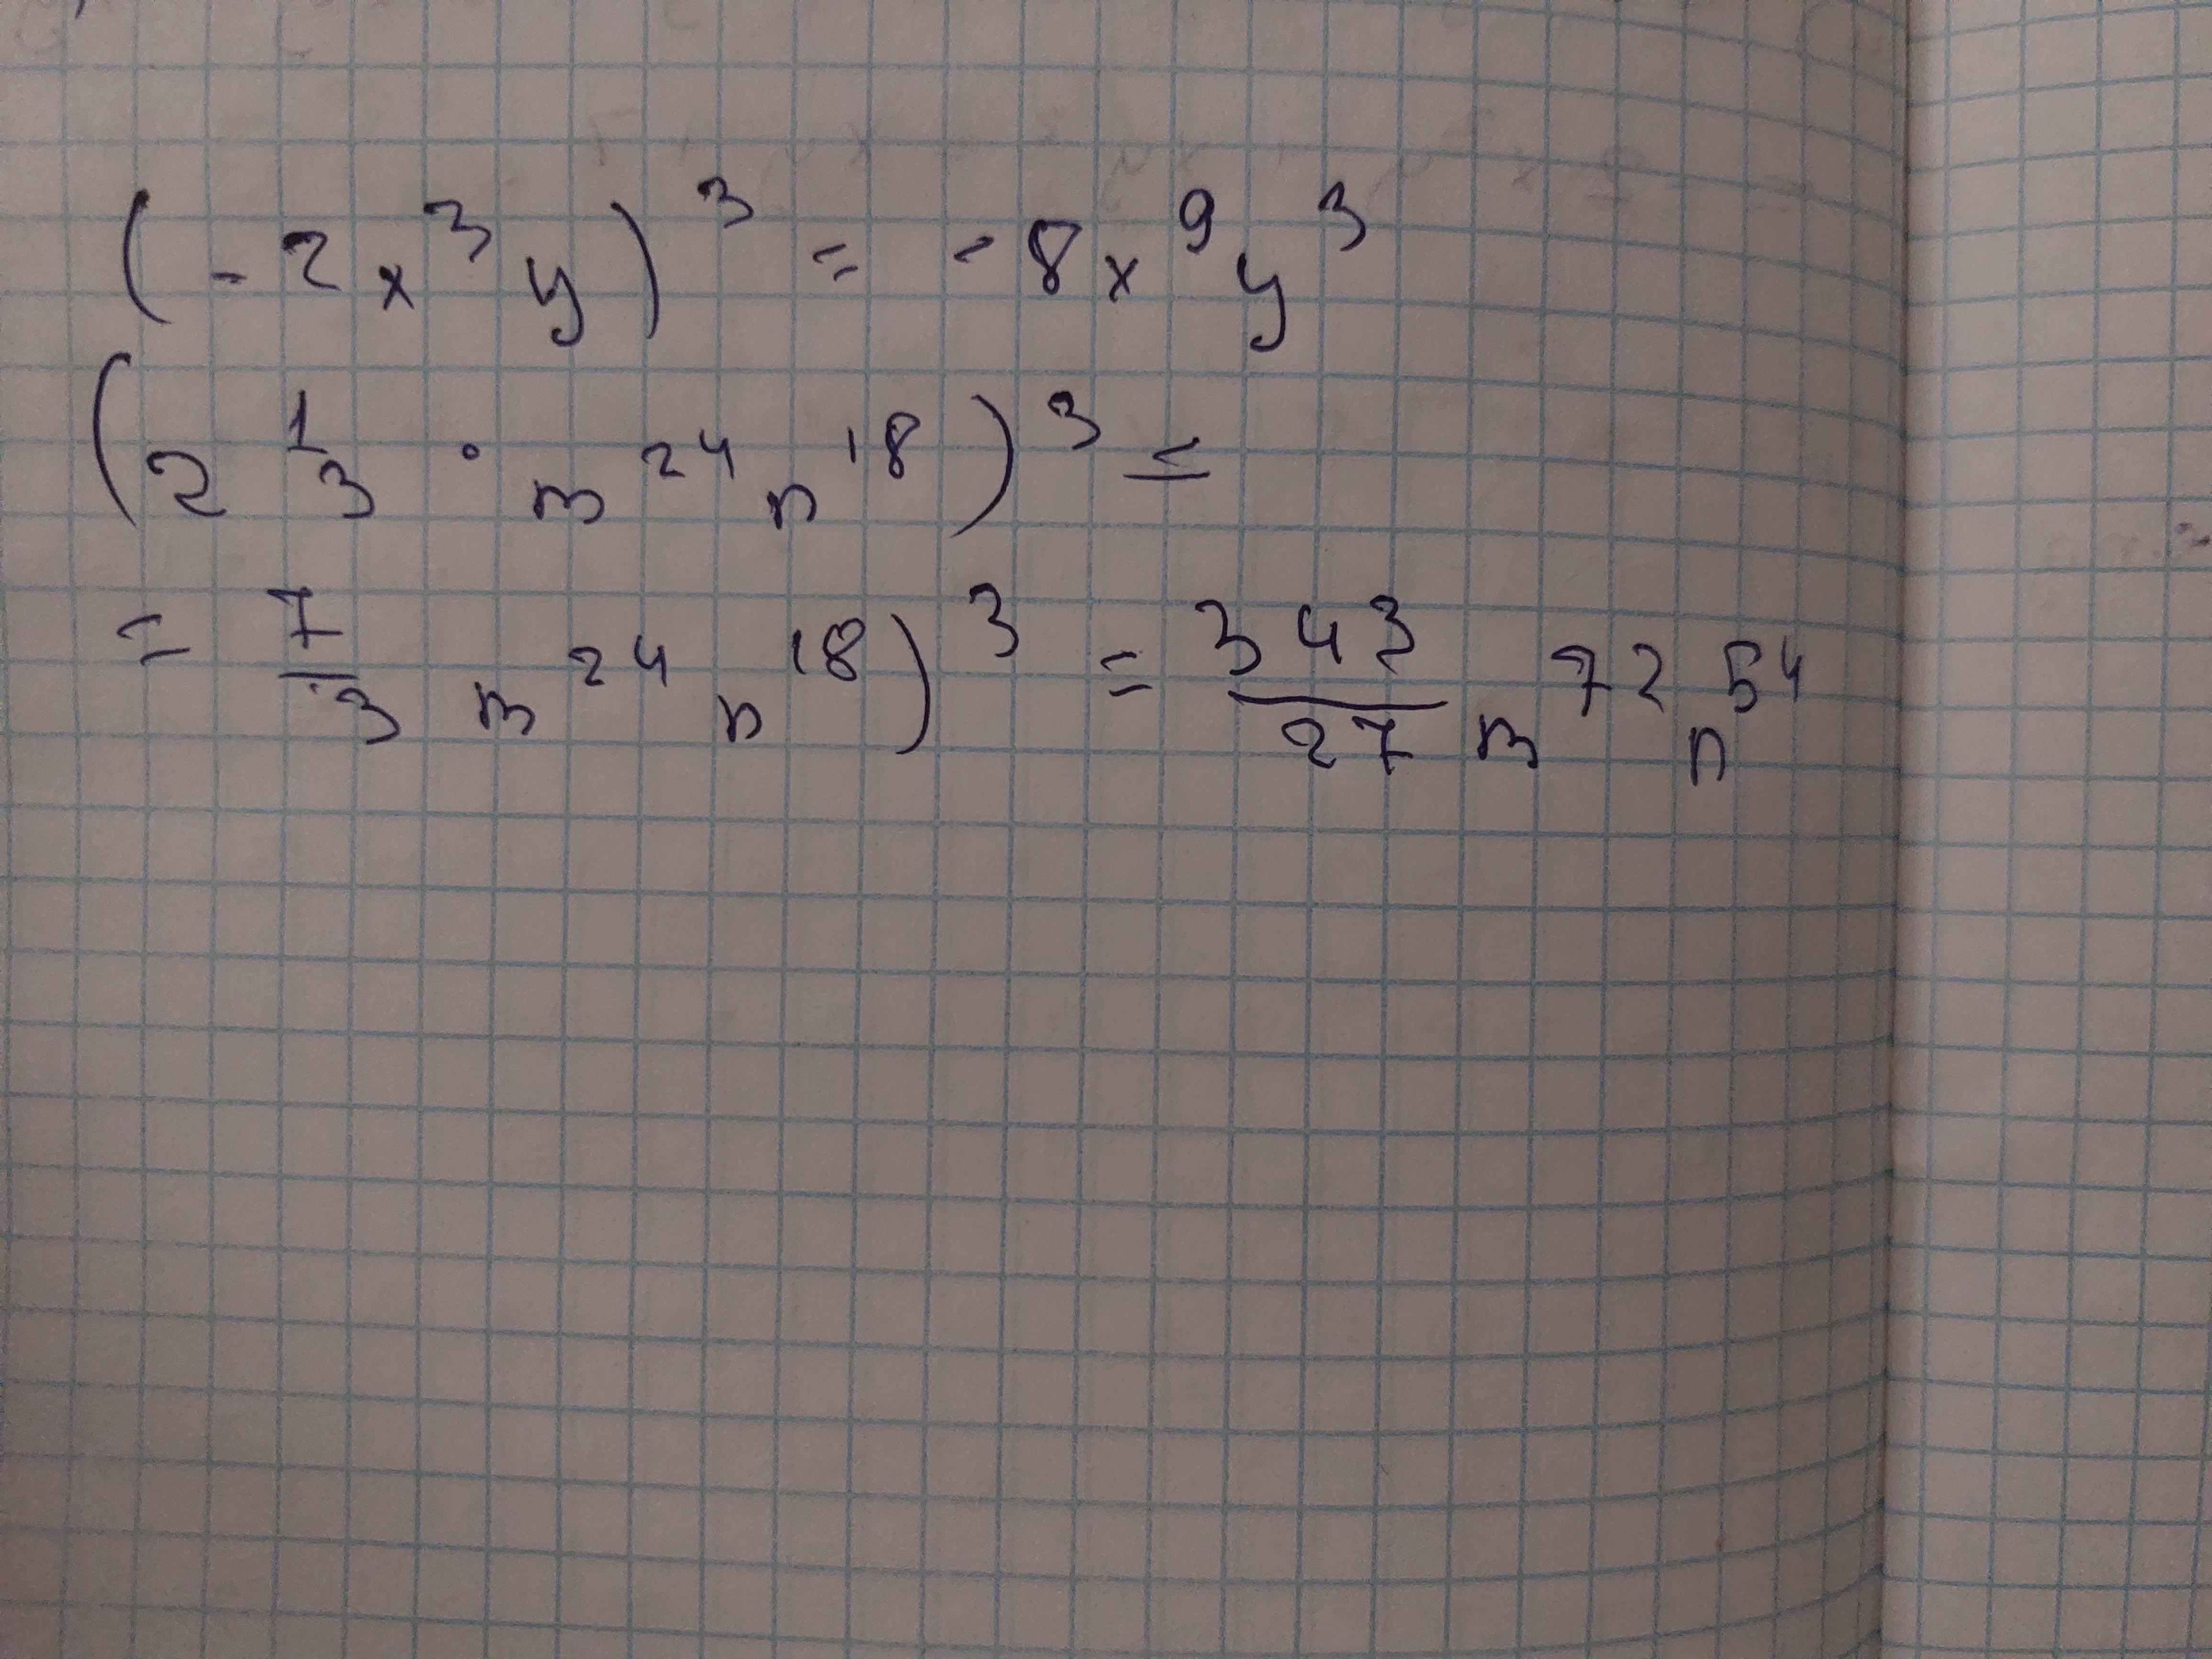 (-2x³y)³ = -8x⁹y³
(2 1/3 · m²⁴n¹⁸)³ =
= 7/3 m²⁴n¹⁸)³ = 343/27 m⁷²n⁵⁴